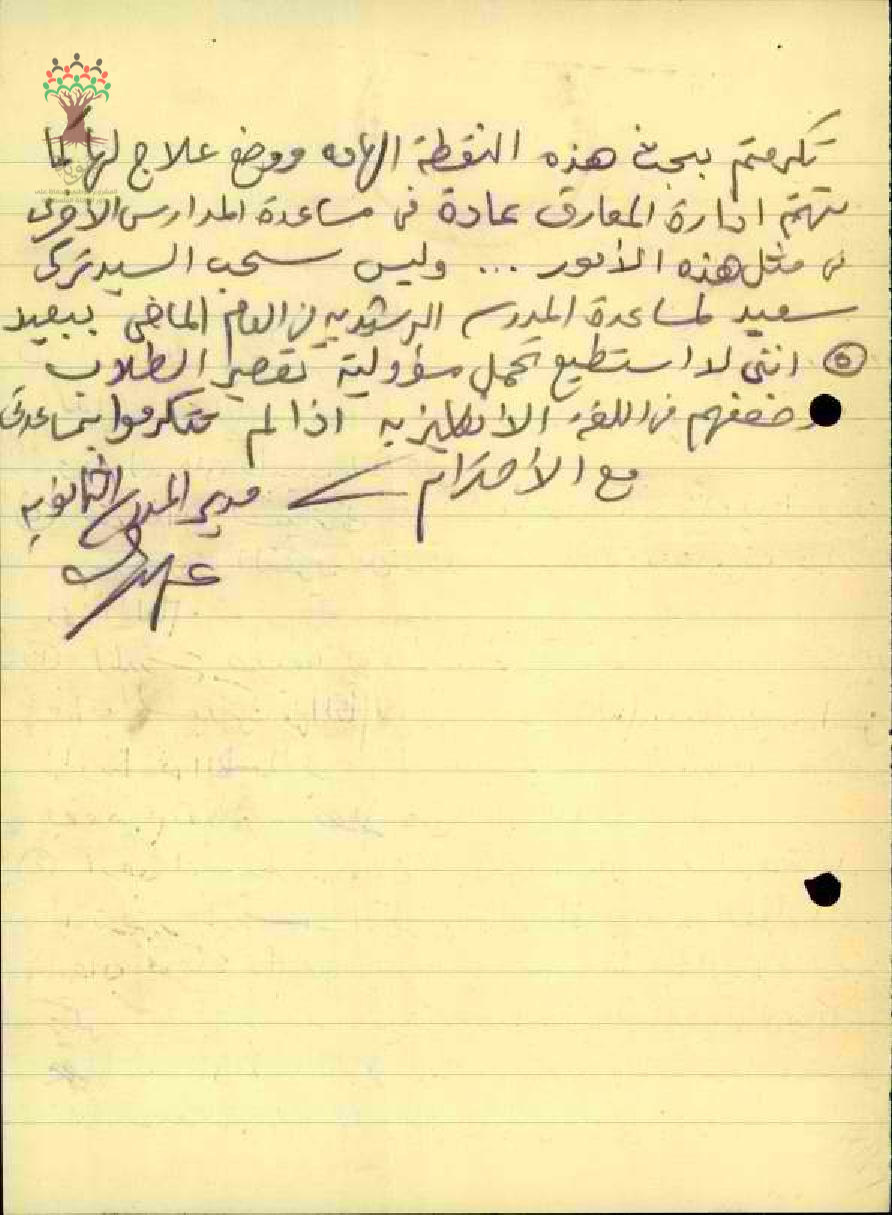 تكرمتم ببحث هذه النقطة الهامه ووضع علاج لها كما
تهتم ادارة المعارف عادة في مساعدة المدارس الاخرى
في مثل هذه الأمور ... وليس سحب السيد تركي
سعيد لمساعدة المدرسه الرشيديه في العام الماضي ببعيد
٥ انني لا استطيع تحمل مسؤولية تقصير الطلاب
وضعفهم في اللغة الانكليزيه اذا لم تتكرموا بمساعدتي
مع الأحترام
مدير المدرسة الثانويه